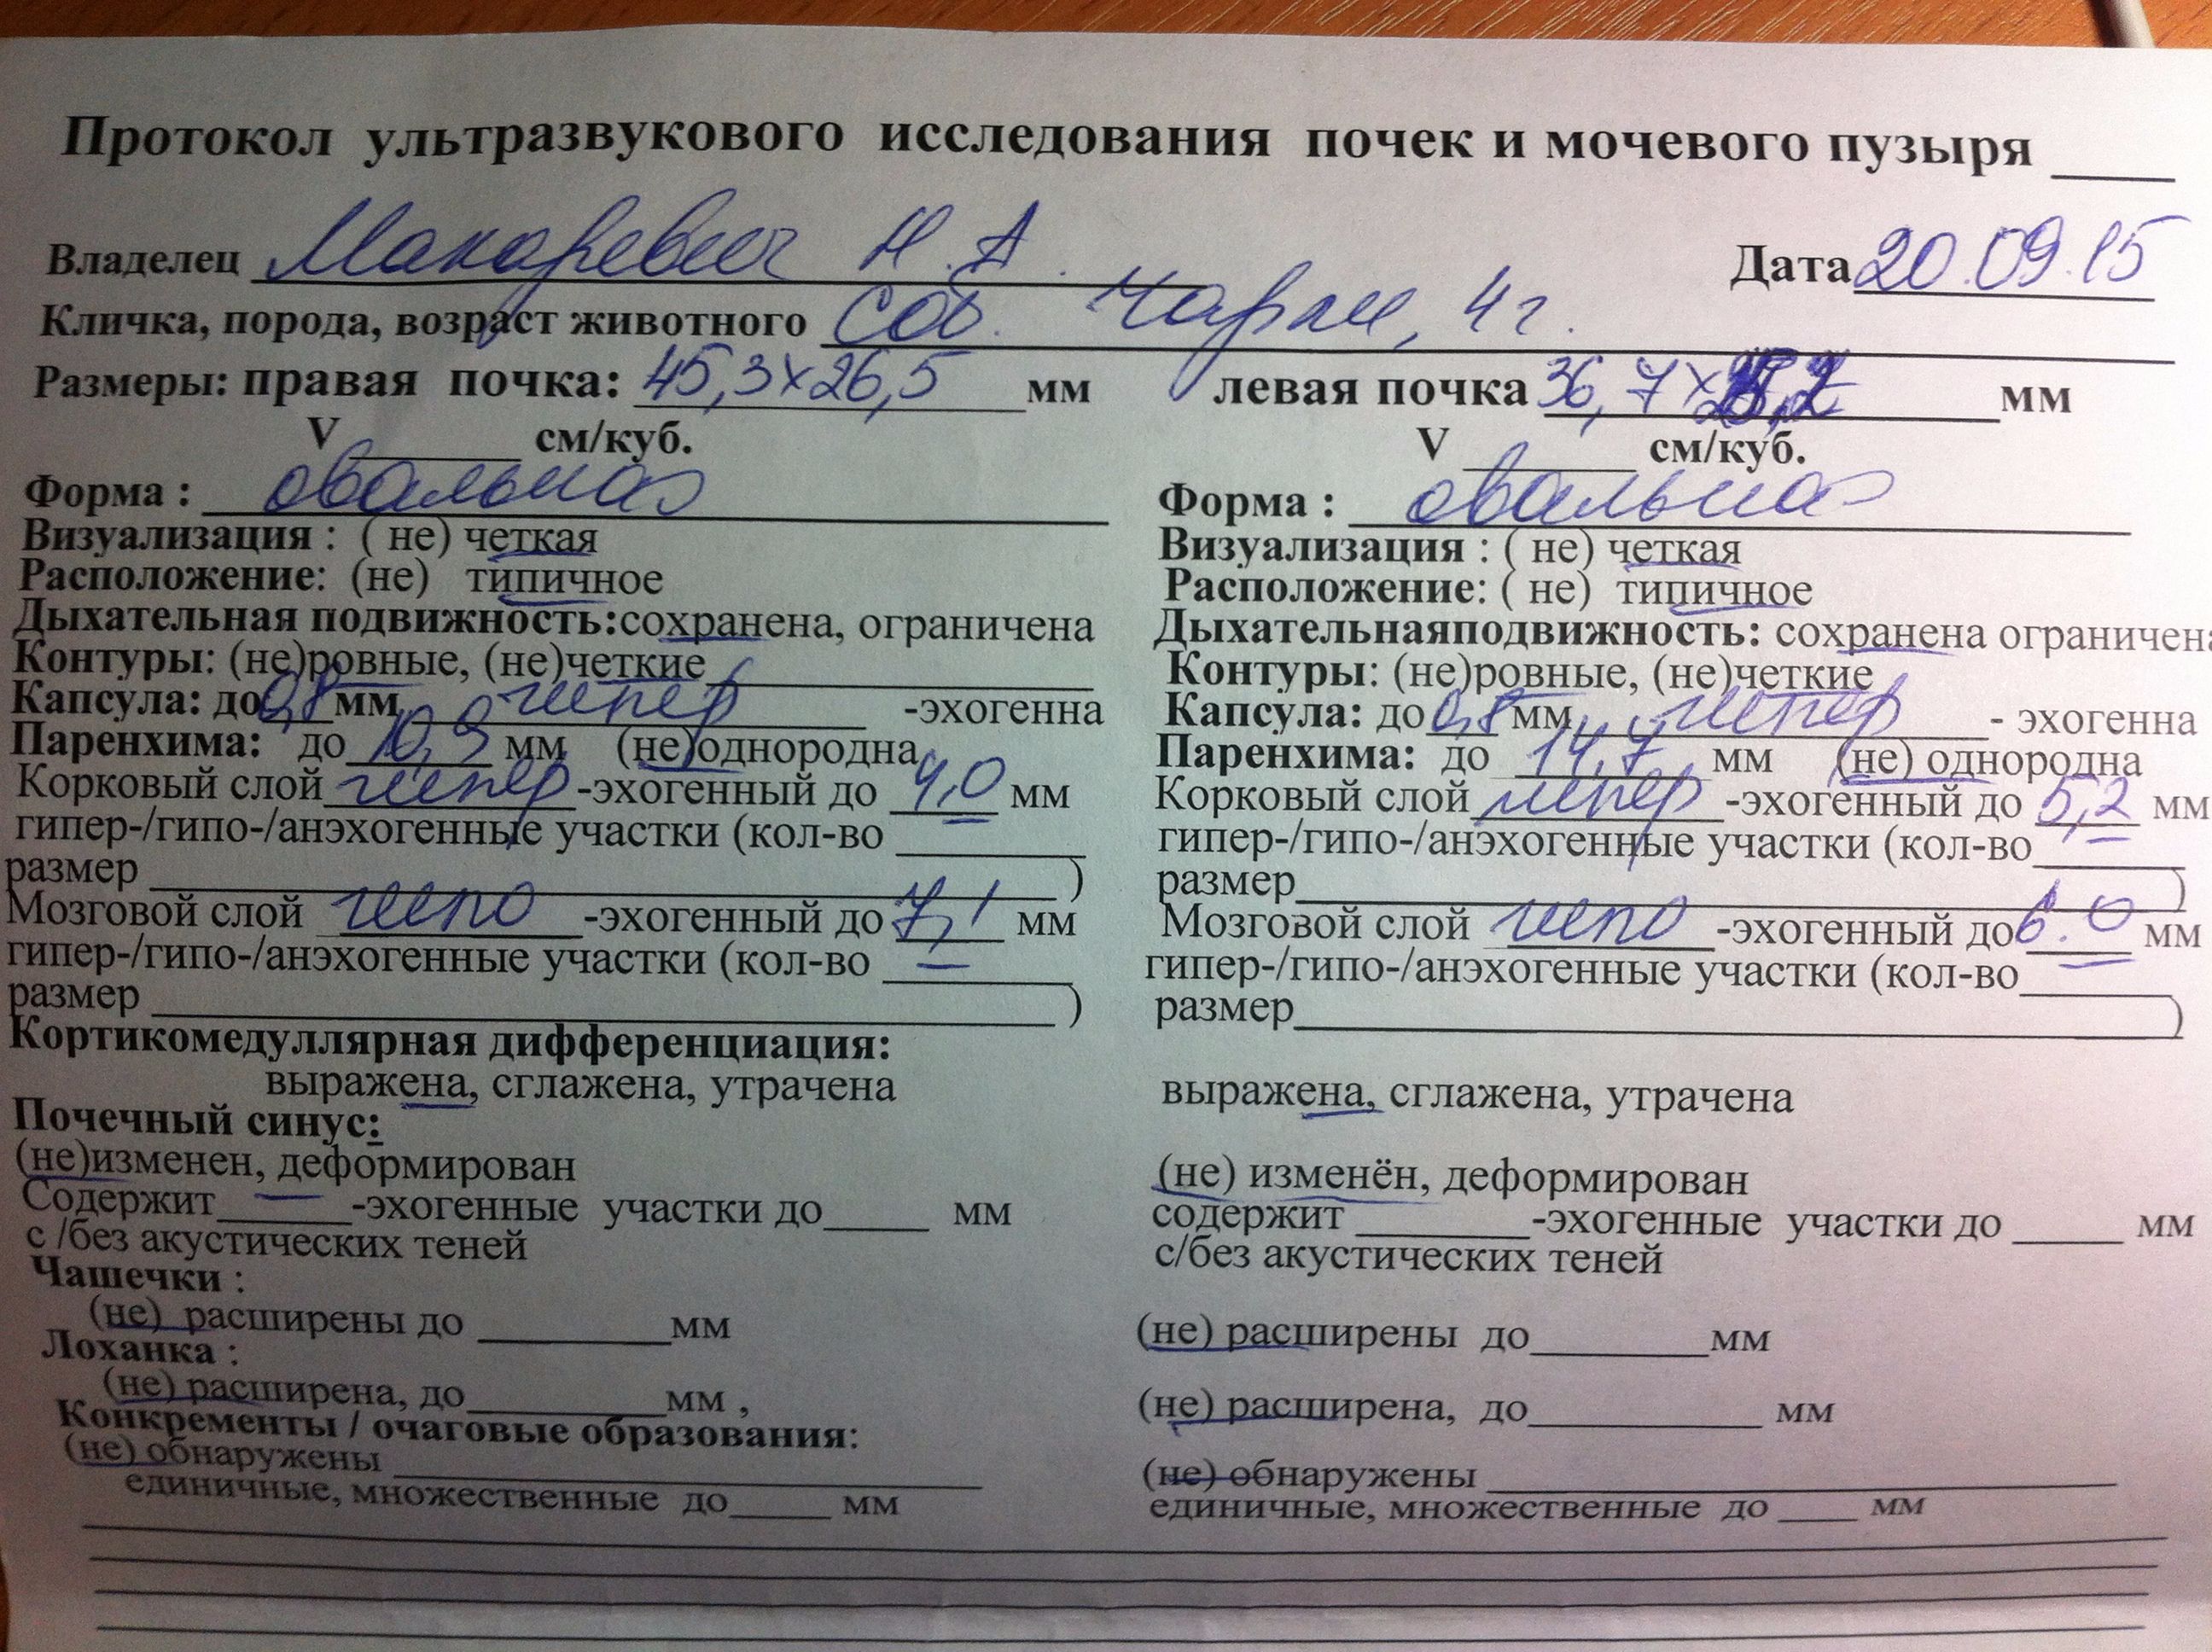 Протокол ультразвукового исследования почек и мочевого пузыря ____
Владелец Макаревич Н.А. Дата 20.09.15
Кличка, порода, возраст животного соб. Чарли, 4 г.
Размеры: правая почка: 45,3х26,5 мм левая почка 36,7х мм
V ______ см/куб. V ______ см/куб.
Форма : овальная Форма : овальная
Визуализация : ( не) четкая Визуализация : ( не) четкая
Расположение: (не) типичное Расположение: ( не) типичное
Дыхательная подвижность:сохранена, ограничена Дыхательнаяподвижность: сохранена ограничена
Контуры: (не)ровные, (не)четкие Контуры: (не)ровные, (не)четкие
Капсула: до 0,8 мм, гипер -эхогенна Капсула: до 0,8 мм, гипер - эхогенна
Паренхима: до 10,9 мм (не)однородна Паренхима: до 14,7 мм (не) однородна
Корковый слой гипер -эхогенный до 4,0 мм Корковый слой гипер -эхогенный до 5,2 мм
гипер-/гипо-/анэхогенные участки (кол-во — гипер-/гипо-/анэхогенные участки (кол-во —
размер ______ ) размер ______ )
Мозговой слой гипо -эхогенный до 7,1 мм Мозговой слой гипо -эхогенный до 6.0 мм
гипер-/гипо-/анэхогенные участки (кол-во — гипер-/гипо-/анэхогенные участки (кол-во —
размер ______ ) размер ______ )
Кортикомедуллярная дифференциация:
выражена, сглажена, утрачена выражена, сглажена, утрачена
Почечный синус:
(не)изменен, деформирован (не) изменён, деформирован
Содержит — -эхогенные участки до____ мм содержит ______-эхогенные участки до ____ мм
с /без акустических теней с/без акустических теней
Чашечки :
(не) расширены до ______мм (не) расширены до______мм
Лоханка :
(не) расширена, до______мм , (не) расширена, до______ мм
Конкременты / очаговые образования:
(не) обнаружены ______ (не) обнаружены ______
единичные, множественные до____ мм единичные, множественные до ____ мм